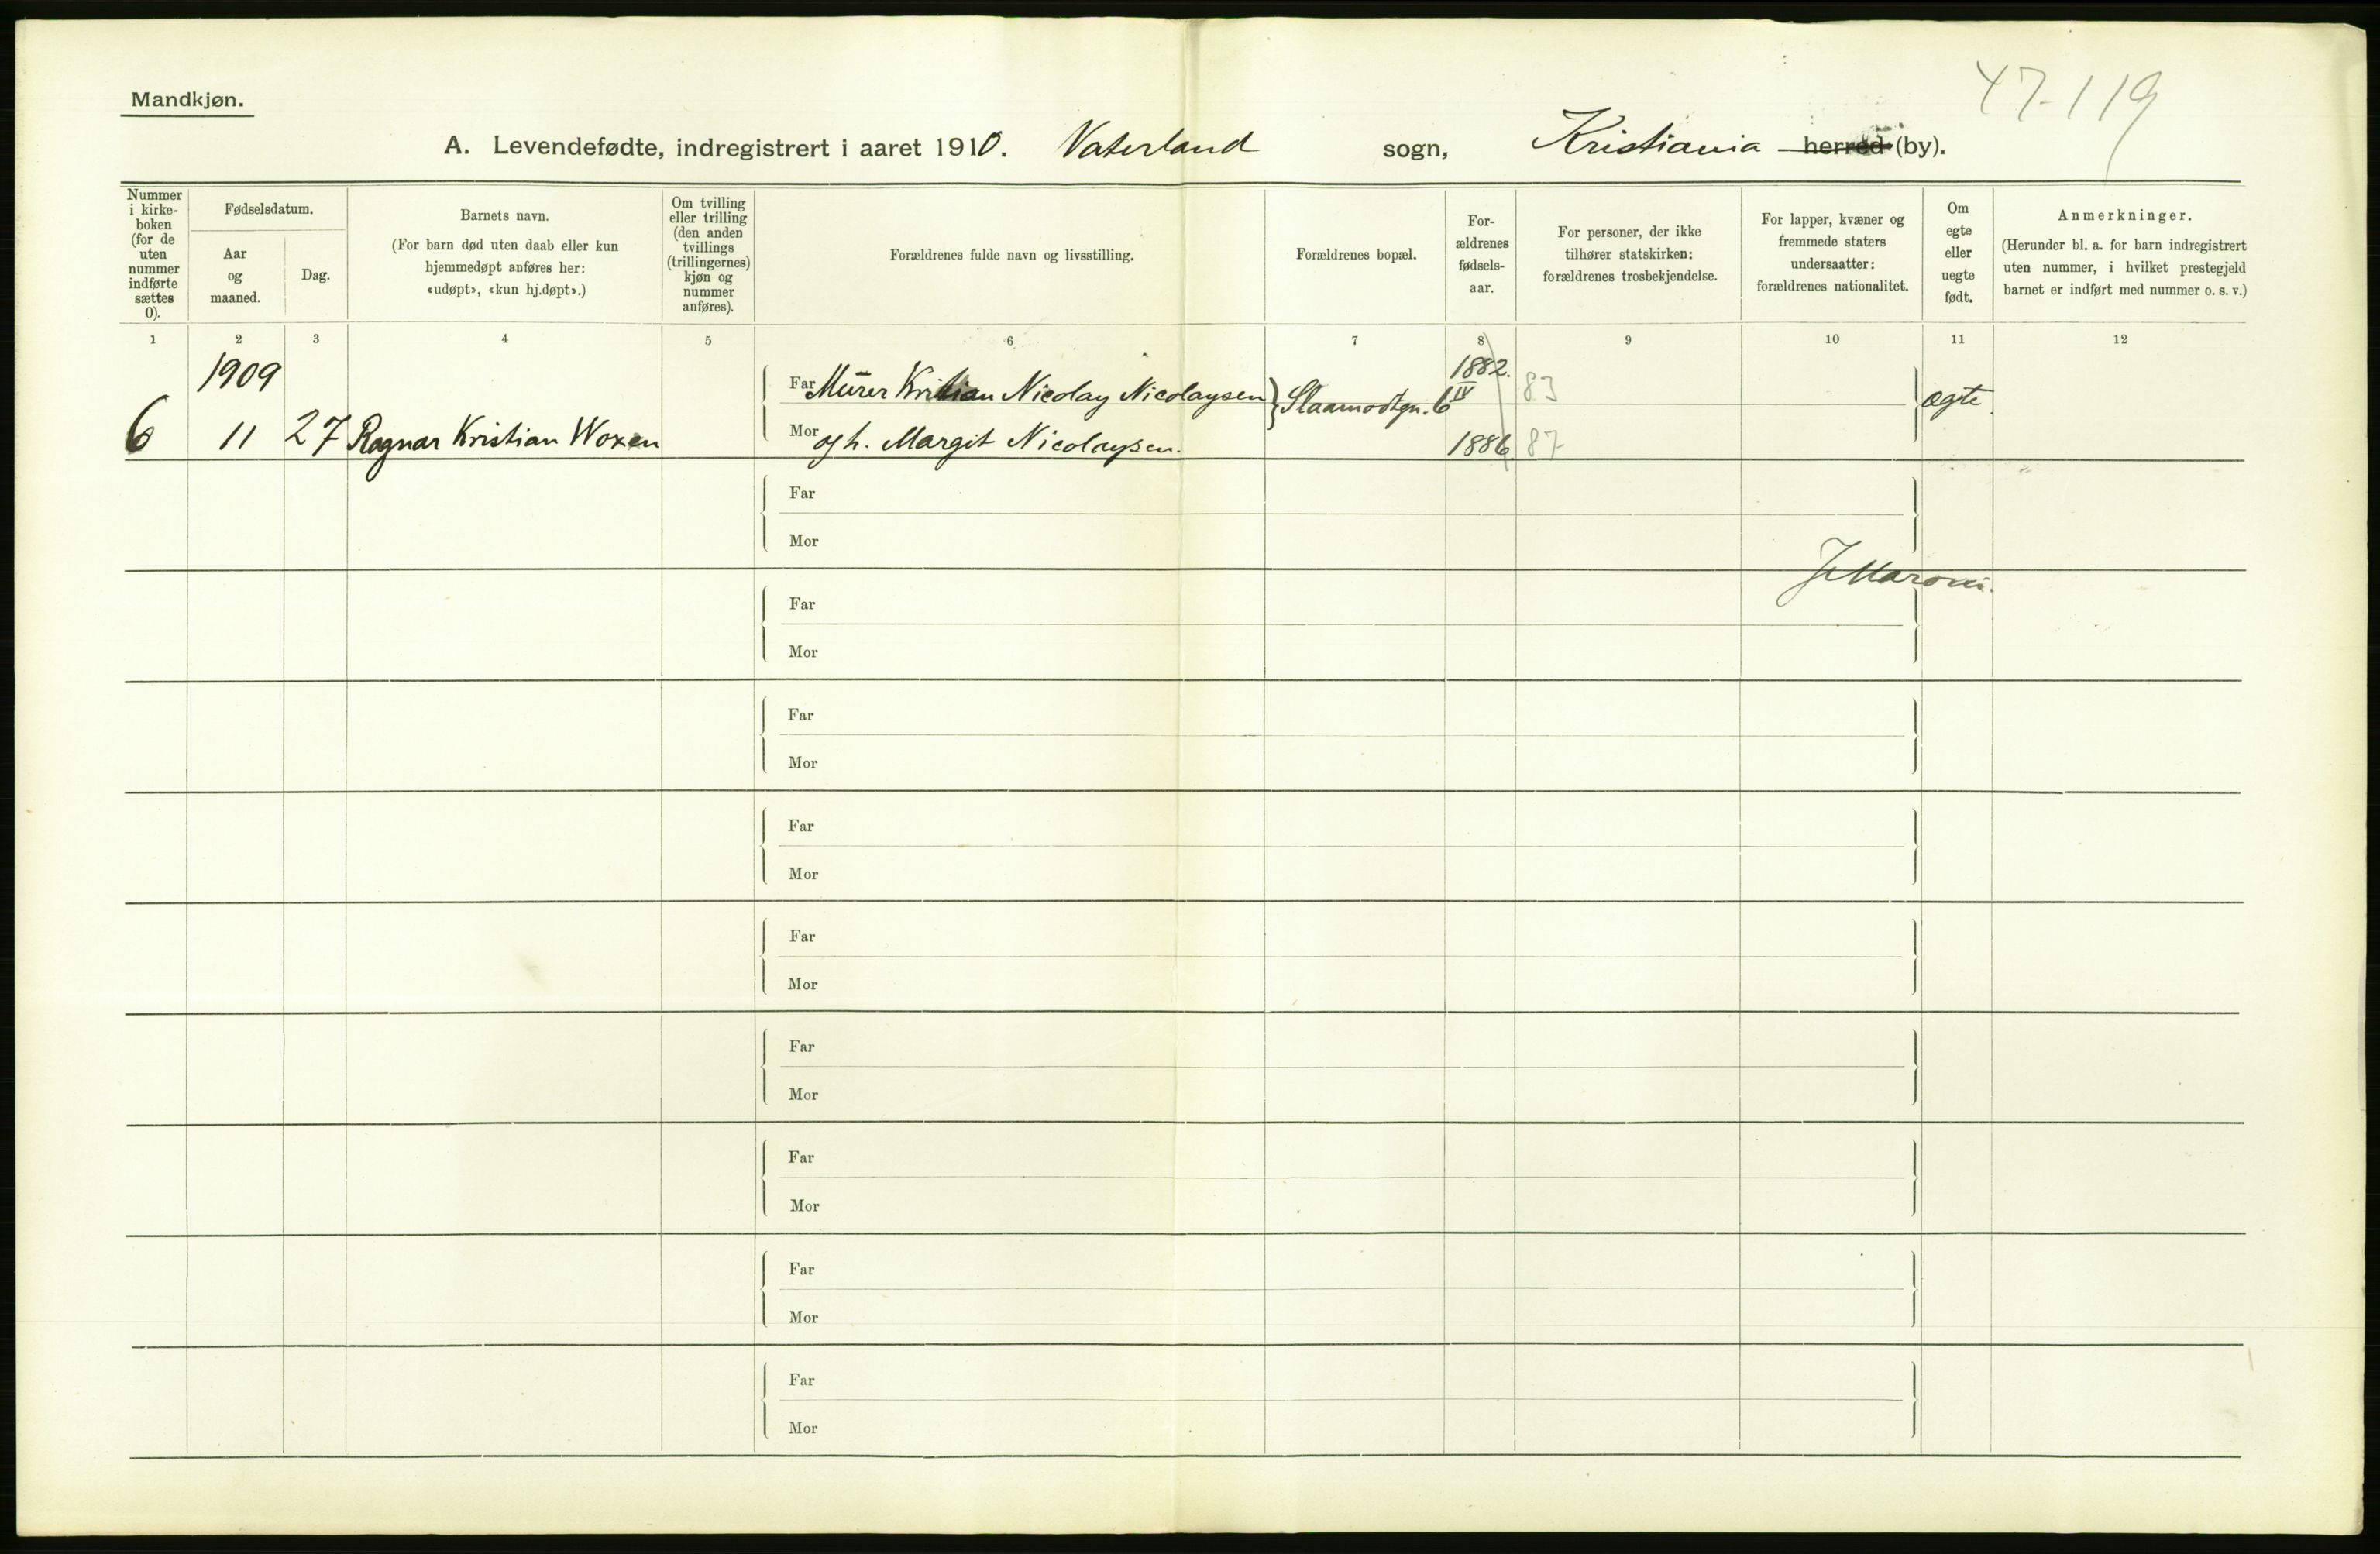 47-119
Mandkjøn.
A. Levendefødte, indregistrert i aaret 1910. Vaterland sogn, Kristiania herred (by).
Nummer i kirke-boken (for de uten nummer indførte sættes 0).
Fødselsdatum.
Aar og maaned.
Dag.
Barnets navn.
(For barn død uten daab eller kun hjemmedøpt anføres her: «udøpt», «kun hj.døpt».)
Om tvilling eller trilling (den anden tvillings (trillingernes) kjøn og nummer anføres).
Forældrenes fulde navn og livsstilling.
Forældrenes bopæl.
For-ældrenes fødsels-aar.
For personer, der ikke tilhører statskirken: forældrenes trosbekjendelse.
For lapper, kvæner og fremmede staters undersaatter: forældrenes nationalitet.
Om egte eller uegte født.
Anmerkninger.
(Herunder bl. a. for barn indregistrert uten nummer, i hvilket prestegjeld barnet er indført med nummer o. s. v.)
1 2 3 4 5 6 7 8 9 10 11 12
1909
Far Murer Kristian Nicolay Nicolaysen
Slaamodtgn. 6 IV
1882. 83
ægte.
6 11 27 Ragnar Kristian Woxen
Mor og h. Margit Nicolaysen.
1886 87
Far
Mor
J. Maroni.
Far
Mor
Far
Mor
Far
Mor
Far
Mor
Far
Mor
Far
Mor
Far
Mor
Far
Mor